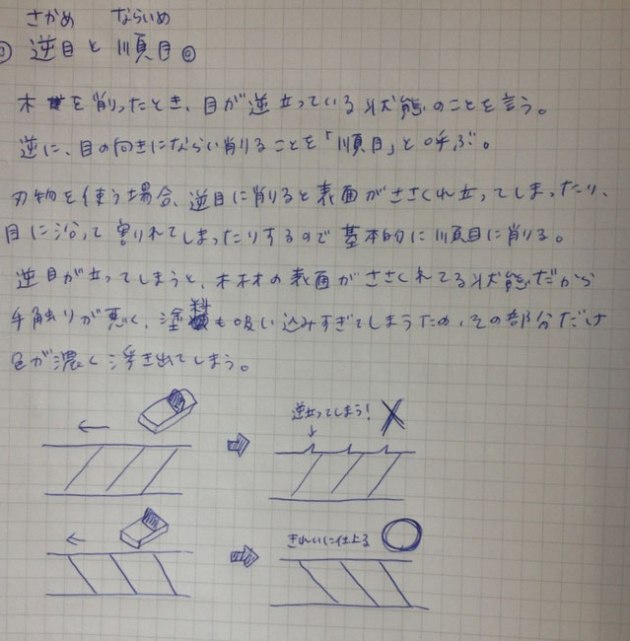 さかめ ならいめ
逆目と順目◎
木を削ったとき、目が逆立っている状態のことを言う。
逆に、目の向きにならい削ることを「順目」と呼ぶ。
刃物を使う場合、逆目に削ると表面がささくれ立ってしまったり、
目に沿って割れてしまったりするので基本的に順目に削る。
逆目が立ってしまうと、木材の表面がささくれてる状態だから
手触りが悪く、塗料も吸い込みすぎてしまうため、その部分だけ
色が濃く浮き出てしまう。
逆立ってしまう!
きれいに仕上る